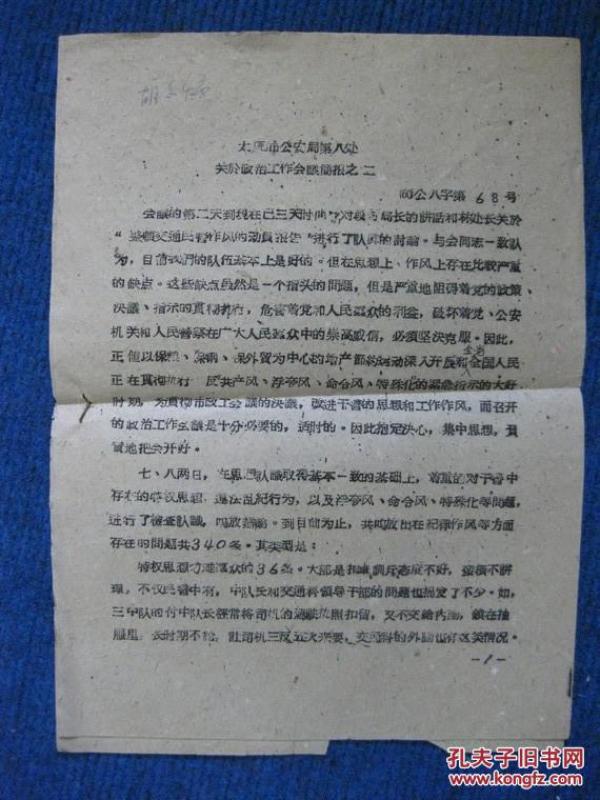 太原市公安局第八处
关於政治工作会议简报之二
公八字第68号
会议的第二天到现在已三天时间，对段局长的讲话和林处长关於
“整顿交通民警作风的动员报告”进行了认真的讨论。与会同志一致认
为，目前我们的队伍基本上是好的。但在思想上、作风上存在比较严重
的缺点。这些缺点虽然是一个指头的问题，但是严重地阻碍着党的政策、
决议、指示的贯彻执行，危害着党和人民群众的利益，破坏着党、公安
机关和人民警察在广大人民群众中的崇高威信，必须坚决克服。因此，
正值以保粮、保钢、保外贸为中心的增产节约运动深入开展和全国人民
全党
正在贯彻执行 民共产风、浮夸风、命令风、特殊化的紧急指示的大好
时期，为贯彻市政工会议的决议，改进干警的思想和工作作风，而召开
的政治工作会议是十分必要的，适时的。因此抱定决心，集中思想，
地把会开好。
七、八两日，在思想认识取得基本一致的基础上，着重的对干警中
存在的特权思想，违法乱纪行为，以及浮夸风、命令风、特殊化等问题，
进行了检查认识，鸣放揭露。到目前为止，共鸣放出在纪律作风等方面
存在的问题共340条。其类型是：
特权思想刁难群众的36条。大部是扣车训斥态度不好，蛮横不讲
理。不仅民警中有，中队长和交通科领导干部的问题也揭发了不少。如，
三中队的付中队长经常将司机的驾驶执照扣留，又不交给内勤，锁在抽
屉里，长时期不给，让司机三反五次来要，交通科的外勤也有这类情况。
-1-
孔夫子旧书网
www.kongfz.com